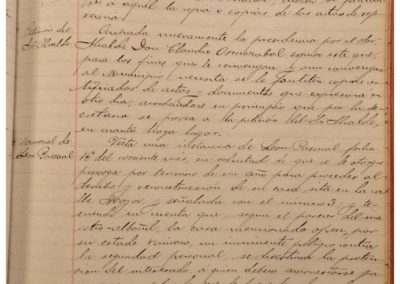 a aquel la copia o copias de los actos de refe-
rencia.
Petición del
Sr. Alcalde
Ocupada nuevamente la presidencia por el Sor.
Alcalde Don Claudio este que,
para los fines que le convengan y aun convengan
al Municipio, necesita se le faciliten copias cer-
tificadas de actas y documentos que expresará en
dicho dia; acordándose en principio que por la Se-
cretaria se provea a la petición del Sr. Alcalde,
en cuanto haya lugar.
Memorial de
Don Pascual
Vista una instancia de Don Pascual
16 del corriente mes, en solicitud de que se le otorgue
prórroga por término de un año para proceder al
y reconstrucción de su casa, sita en la ca-
lle Mayor y señalada con el número 3, y te-
niendo en cuenta que, según el parecer del ma-
estro albañil, la casa mencionada ofrece, por
su estado ruinoso, un inminente peligro contra
la seguridad personal, se desestima la preten-
sión del interesado, a quien deberá